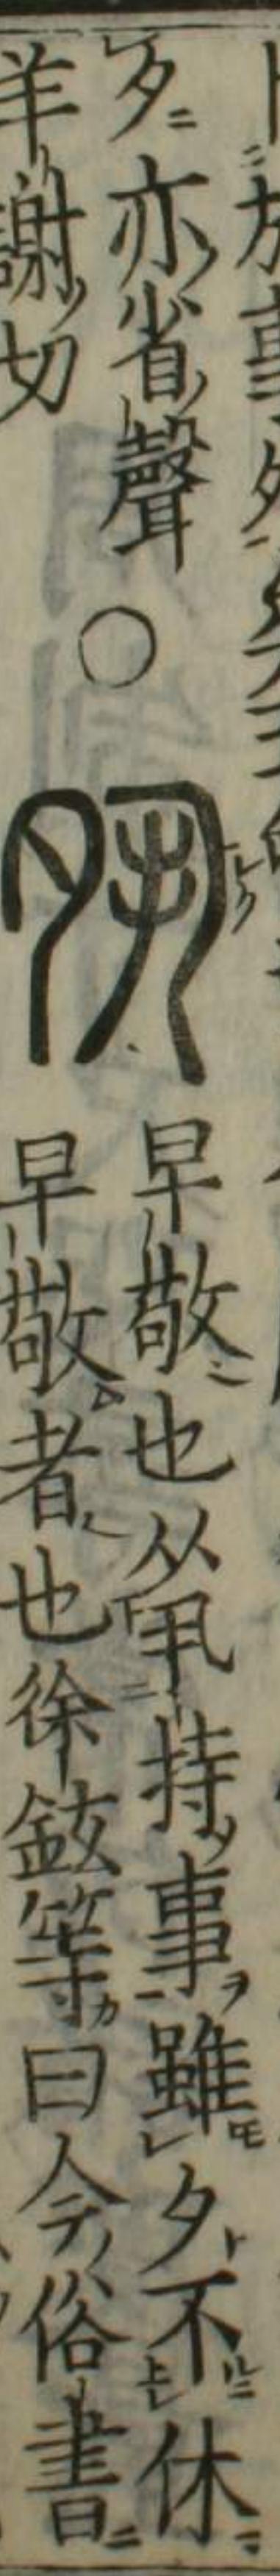 夕亦省聲
羊謝切
○
𡖊
早敬也从丮持事雖夕不休
早敬者也徐鉉等曰今俗書